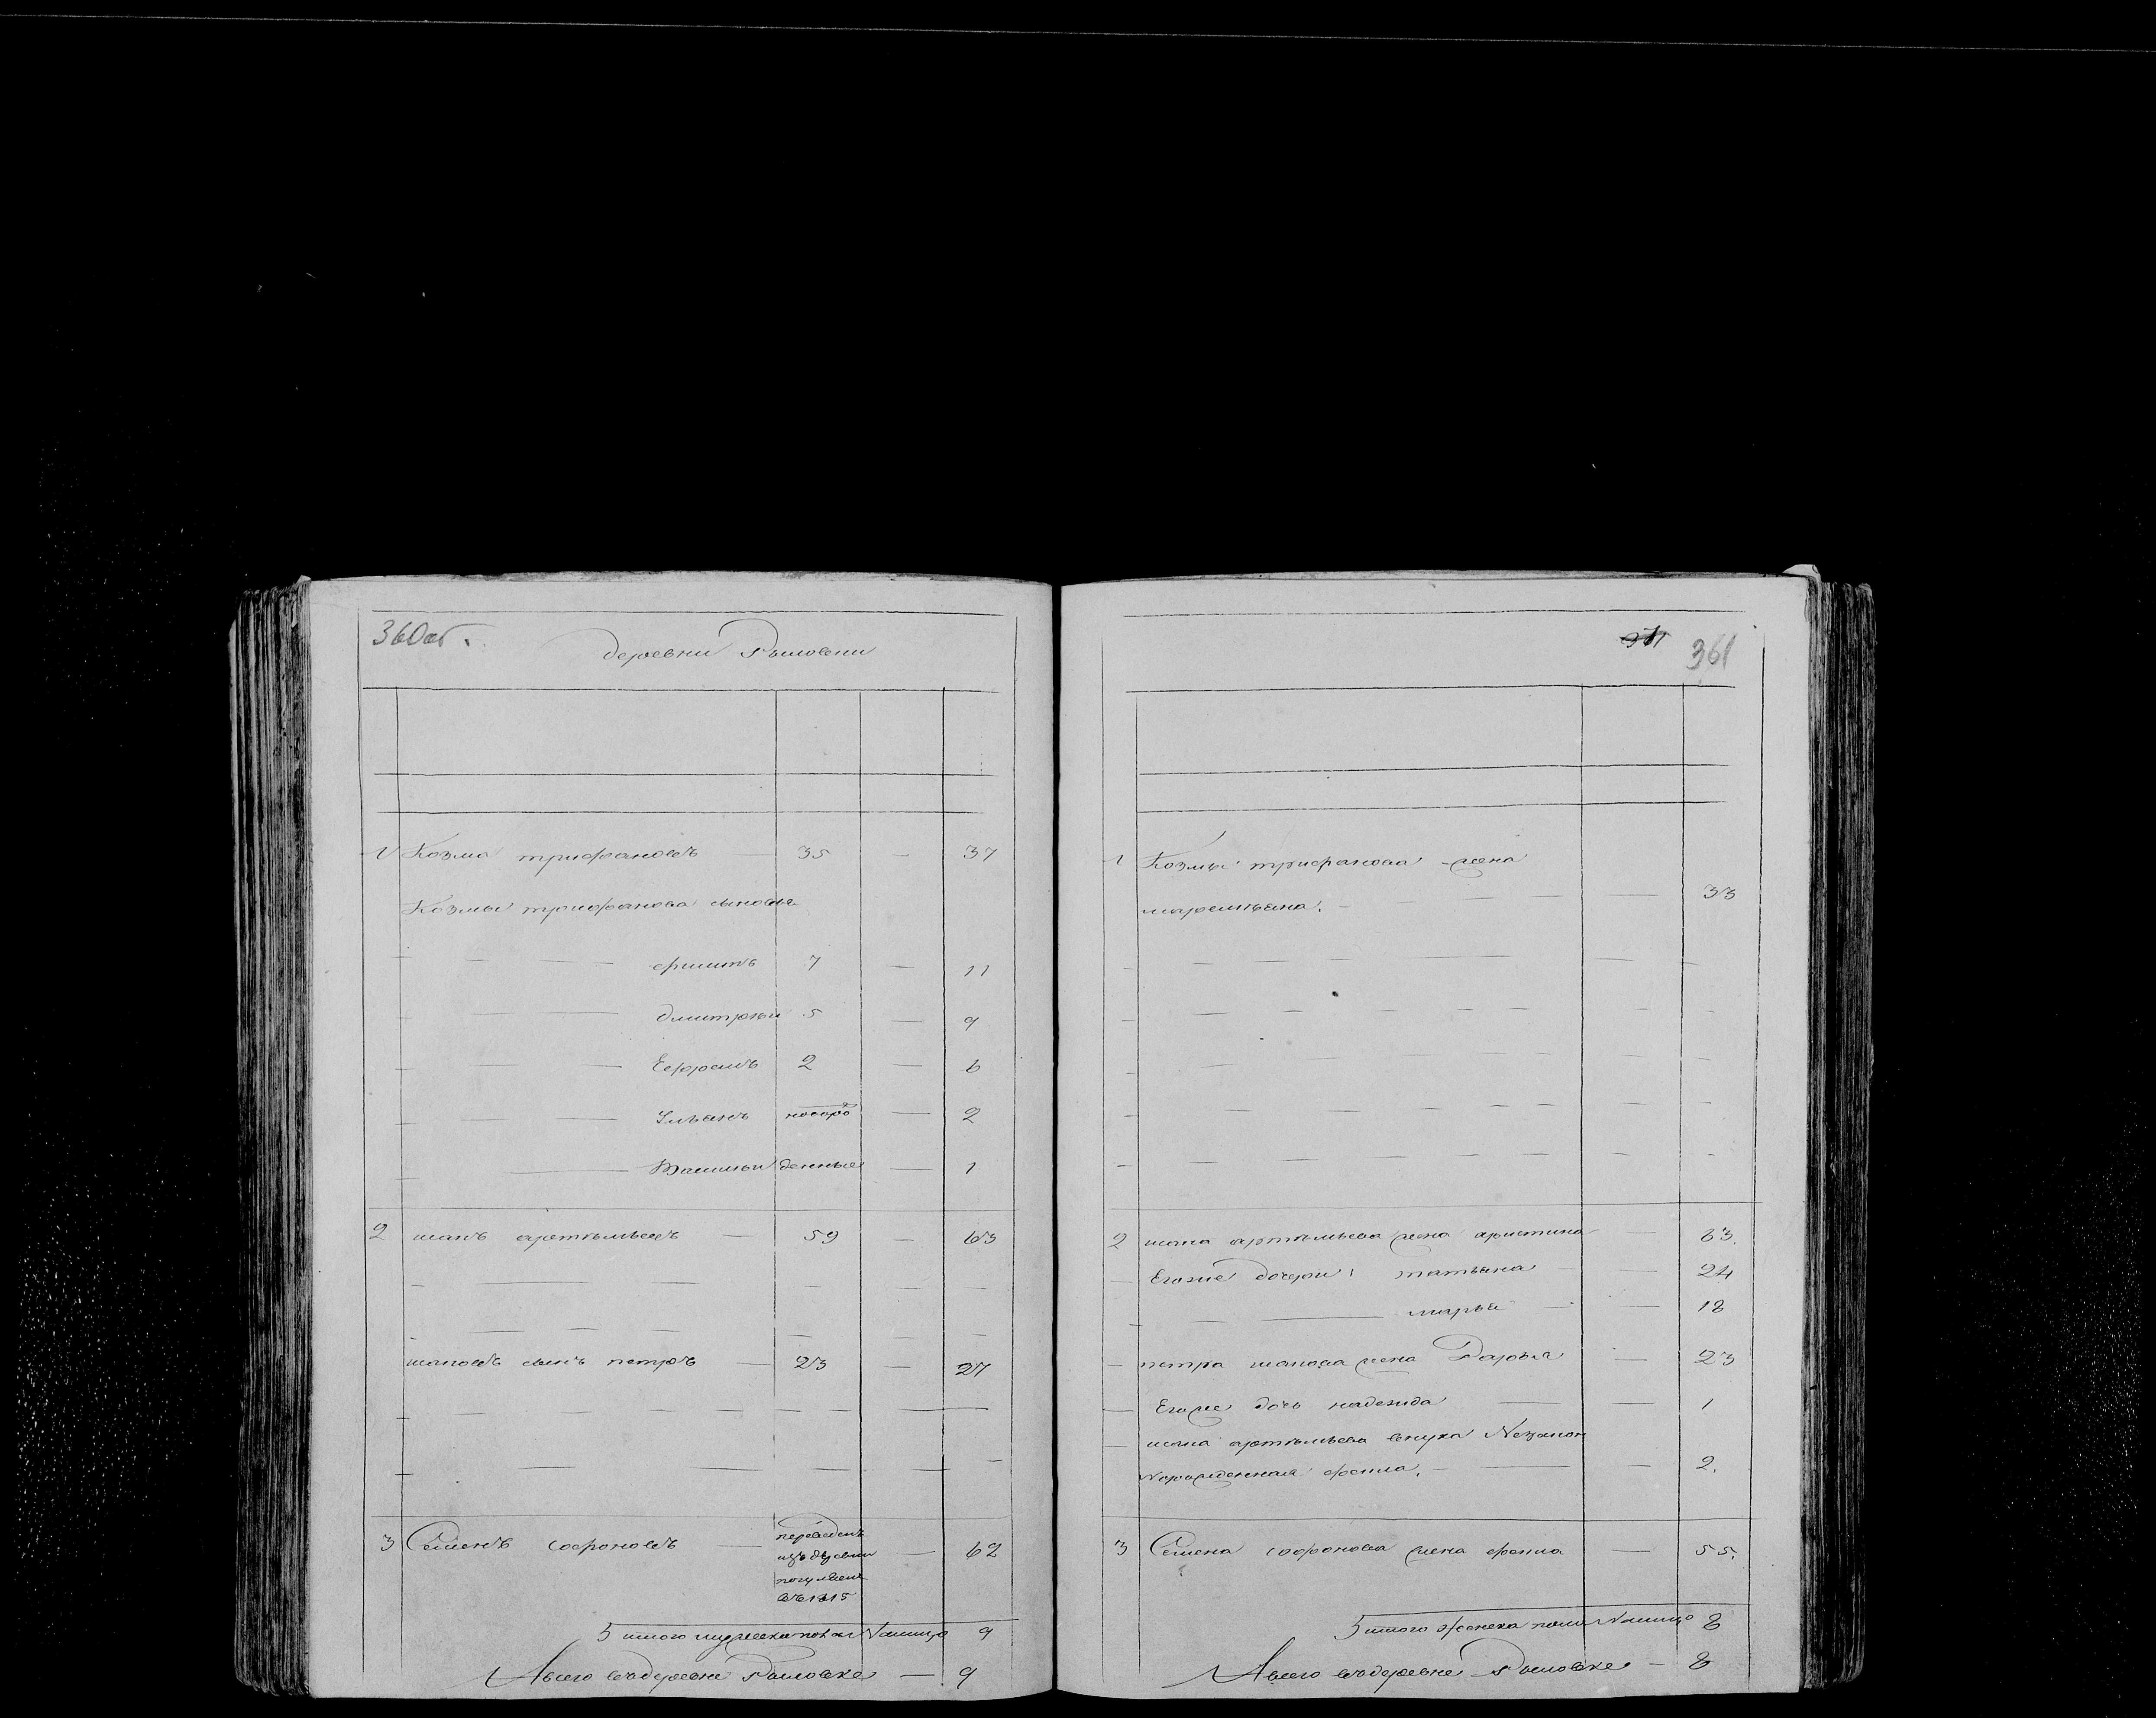 360об.
деревни
1 Козма трифановъ — 35 — 37
Козмы трифанова сыновья
филипъ 7 — 11
дмитрѣи 5 — 9
Ефремъ 2 — 6
Ульянъ новоро — 2
Василеи денные — 1
2 артемьевъ — 59 — 63
сынъ петръ — 23 — 27
3 Семенъ софроновъ — переведенъ — 62
изъ деревни
въ 1815
Итого мужеска пола Налицо 9
Всего въ деревне — 9
361
1 Козмы трифанова жена
— 33
2 артемьева жена аристина — 63.
Егоже дочери: татьяна — 24
марья — 18
петра жена Дарья — 23
Егоже дочь надежда — 1
артемьева внука Незакон
Норожденная фекла. — 2.
3 Семена софронова жена фекла — 55.
Итого женска пола Налицо 8
Всего въ деревне — 8